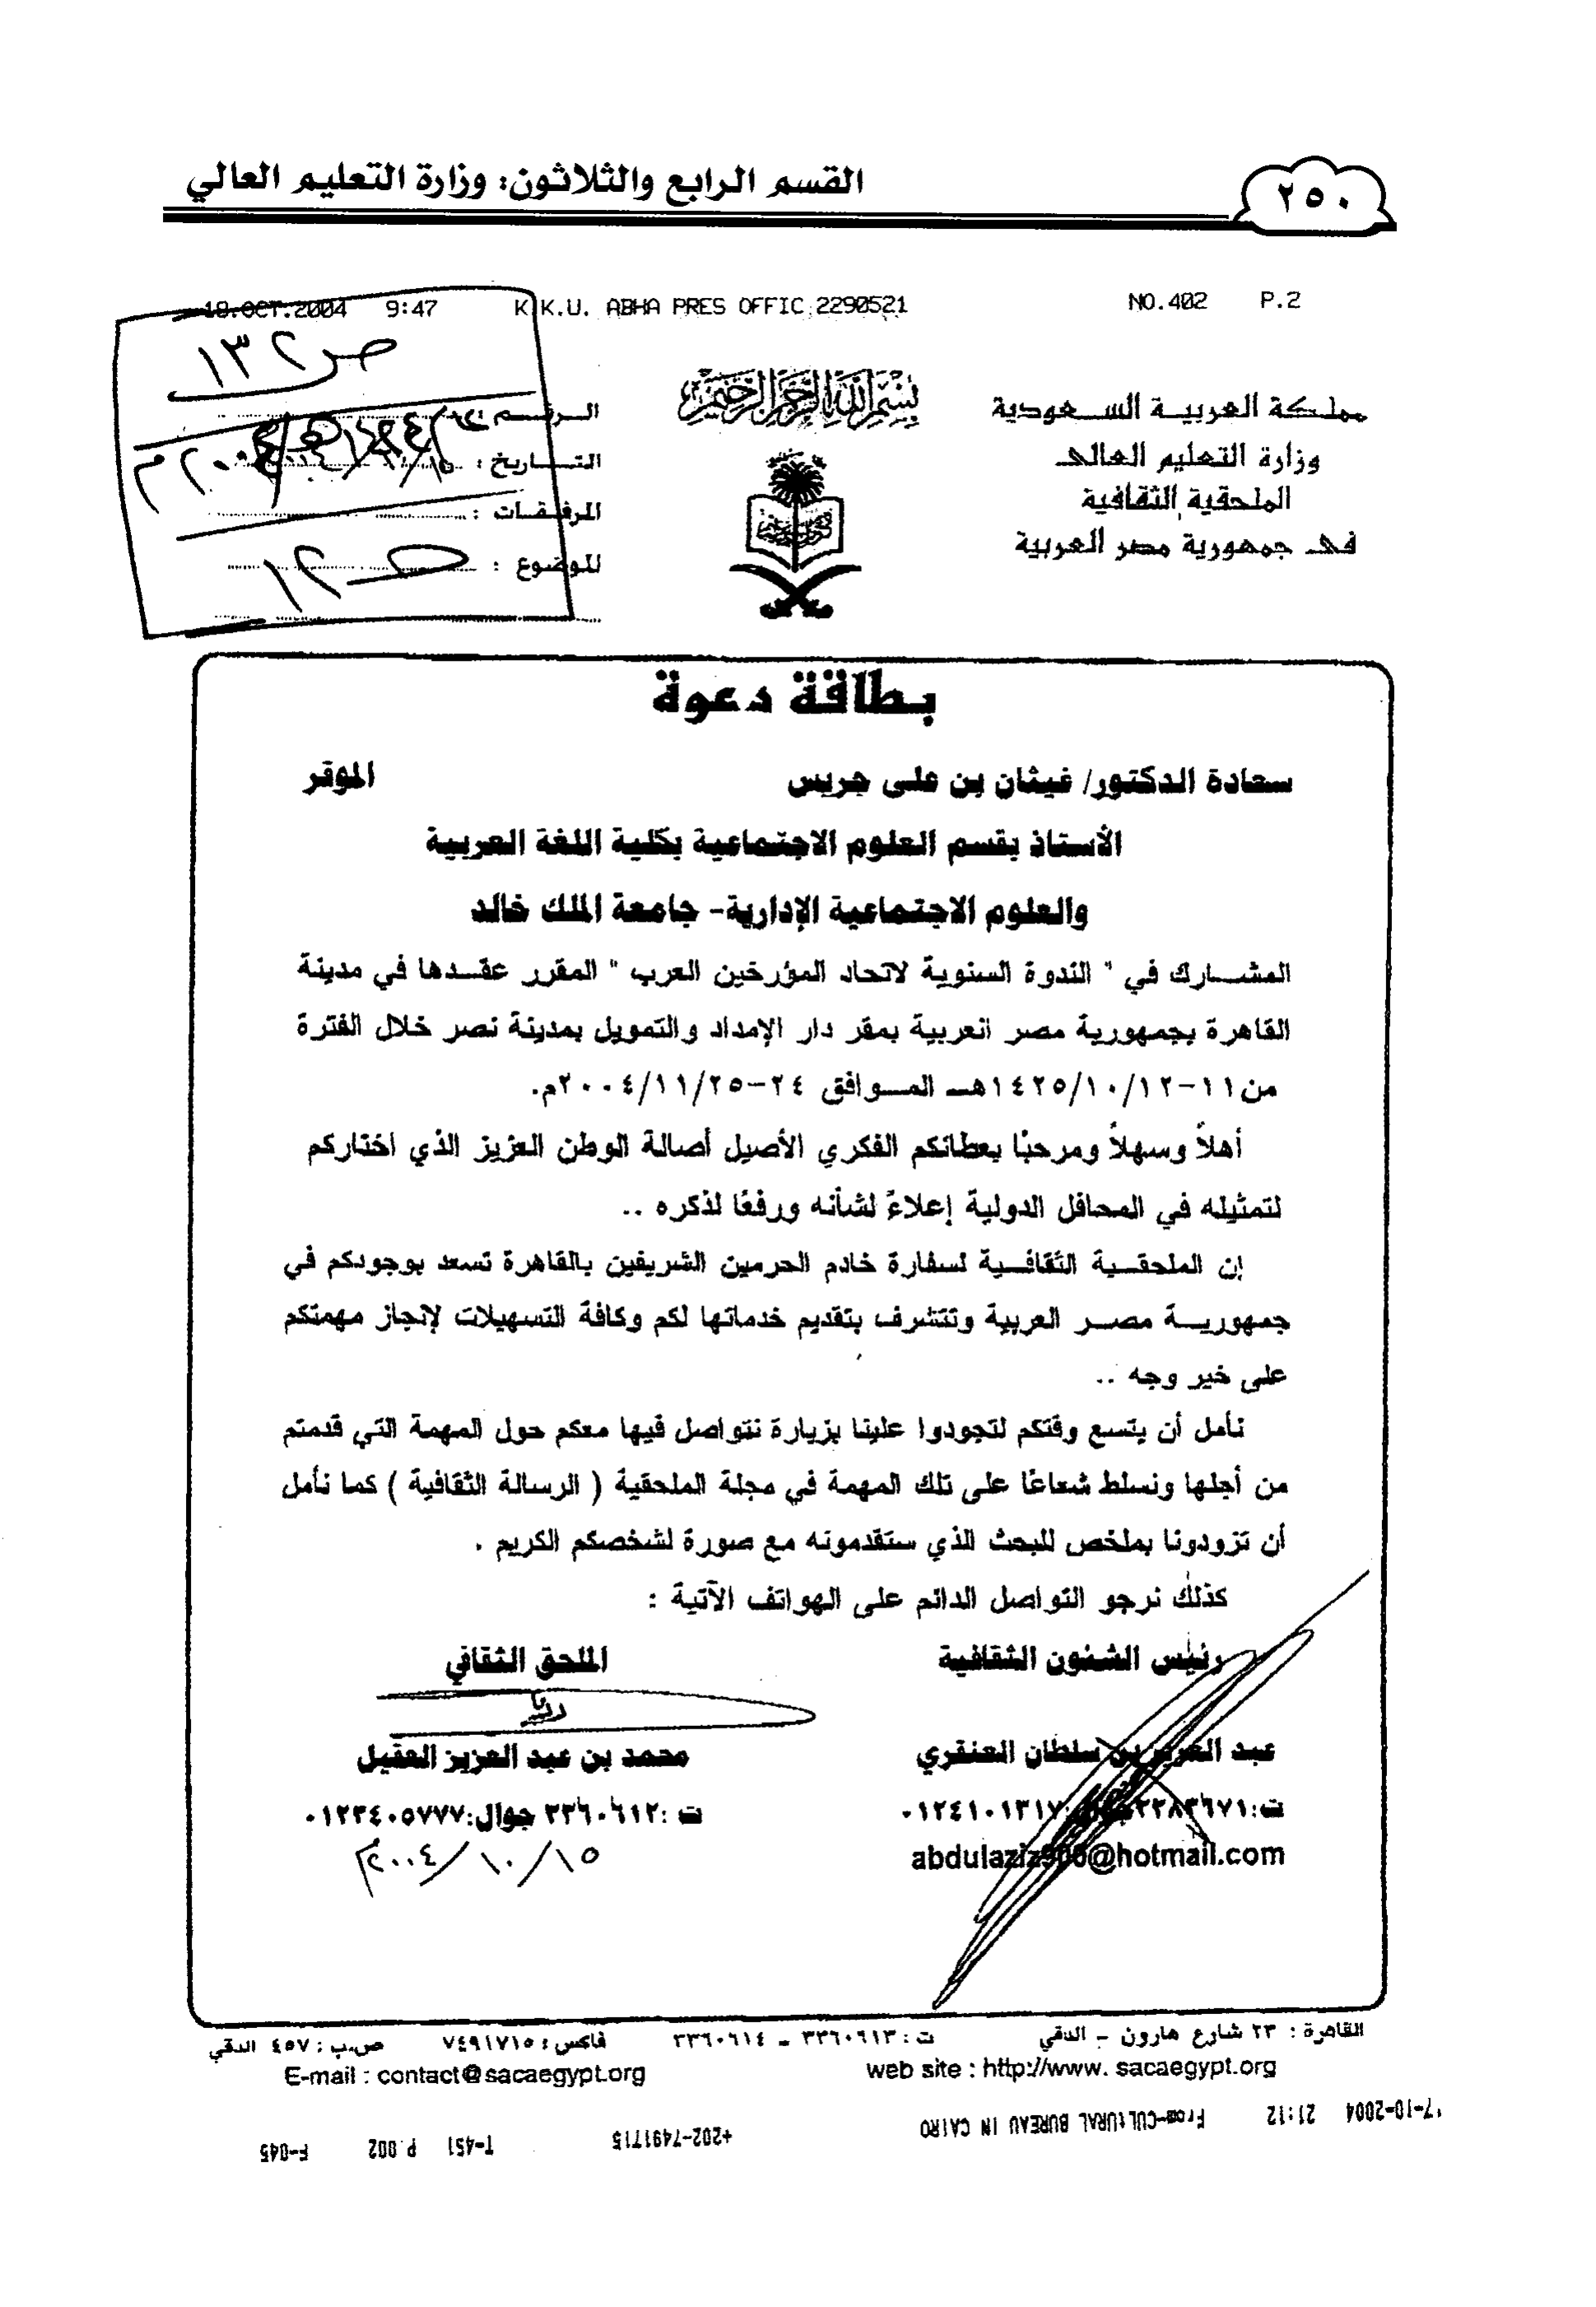 ٢٥٠
القسم الرابع والثلاثون: وزارة التعليم العالي
18.OCT.2004 9:47 K.K.U. ABHA PRES OFFIC 2290521 NO.402 P.2
بسم الله الرحمن الرحيم
مملكة العربية السعودية
وزارة التعليم العالى
الملحقية الثقافية
فى جمهورية مصر العربية
الرقم :
التاريخ :
المرفقات :
الموضوع :
بطاقة دعوة
سعادة الدكتور/ غيثان بن على جريس الموقر
الأستاذ بقسم العلوم الاجتماعية بكلية اللغة العربية
والعلوم الاجتماعية الإدارية- جامعة الملك خالد
المشارك في " الندوة السنوية لاتحاد المؤرخين العرب " المقرر عقدها في مدينة
القاهرة بجمهورية مصر العربية بمقر دار الإمداد والتمويل بمدينة نصر خلال الفترة
من ١١-١٤٢٥/١٠/١٢هـ الموافق ٢٤-٢٠٠٤/١١/٢٥م.
أهلاً وسهلاً ومرحبًا بعطائكم الفكري الأصيل أصالة الوطن العزيز الذي اختاركم
لتمثيله في المحافل الدولية إعلاءً لشأنه ورفعًا لذكره ..
إن الملحقية الثقافية لسفارة خادم الحرمين الشريفين بالقاهرة تسعد بوجودكم في
جمهورية مصر العربية وتتشرف بتقديم خدماتها لكم وكافة التسهيلات لإنجاز مهمتكم
على خير وجه ..
نأمل أن يتسع وقتكم لتجودوا علينا بزيارة نتواصل فيها معكم حول المهمة التي قدمتم
من أجلها ونسلط شعاعًا على تلك المهمة في مجلة الملحقية ( الرسالة الثقافية ) كما نأمل
أن تزودونا بملخص للبحث الذي ستقدمونه مع صورة لشخصكم الكريم .
كذلك نرجو التواصل الدائم على الهواتف الآتية :
رئيس الشئون الثقافية
عبد العزيز بن سلطان العنقري
ت: ٢٢٨٣٦٧١ جوال: ٠١٢٤١٠١٣١٧
abdulaziz900@hotmail.com
الملحق الثقافي
محمد بن عبد العزيز العقيل
ت :٣٣٦٠٦١٢ جوال:٠١٢٣٤٠٥٧٧٧
١٥/١٠/٢٠٠٤م
القاهرة : ٢٣ شارع هارون - الدقي ت : ٣٣٦٠٦١٣ - ٣٣٦٠٦١٤ فاكس : ٧٤٩١٧١٥ ص.ب : ٤٥٧ الدقي
web site : http://www. sacaegypt.org E-mail : contact@sacaegypt.org
17-10-2004 21:12 From-CULTURAL BUREAU IN CAIRO +202-7491715 T-451 P.002 F-045